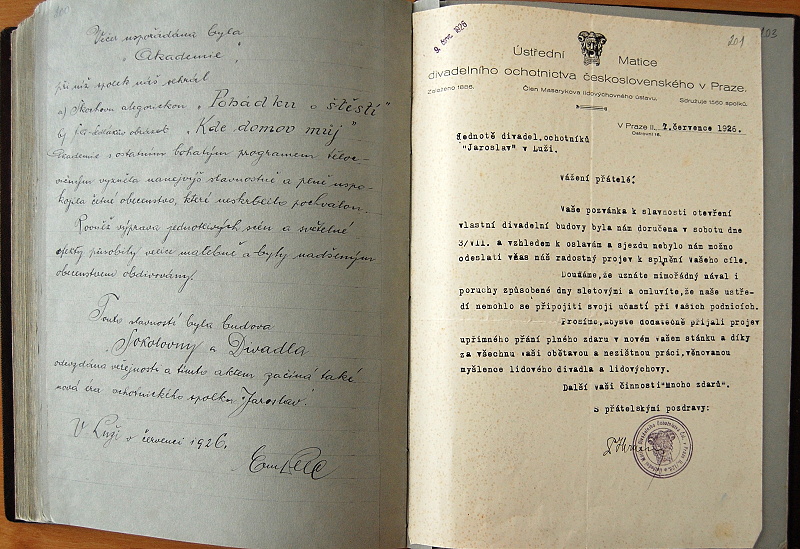 Večer uspořádána byla
"Akademie",
při níž spolek náš sehrál
a) Škorkovu alegorickou "Pohádku o štěstí"
b) "Kde domov můj"
Akademie s ostatním bohatým programem tělo-
cvičným vyzněla nanejvýš slavnostně a plně uspo-
kojila četné obecenstvo, které neskrblilo pochvalou.
Rovněž výprava jednotlivých scén a světelné
efekty působily velice malebně a byly nadšeným
obecenstvem obdivovány.
Touto slavností byla budova
"Sokolovny a Divadla"
odevzdána veřejnosti a tímto aktem začíná také
nová éra ochotnického spolku "Jaroslav".
V Luži v červenci 1926.
201
103
9. čvc. 1926
Ústřední Matice
divadelního ochotnictva československého v Praze.
Založeno 1885. Člen Masarykova lidovýchovného ústavu. Sdružuje 1560 spolků.
V Praze II., 7. července 1926.
Ostrovní 16.
Jednotě divadel.ochotníků
"Jaroslav" v Luži.
Vážení přátelé!
Vaše pozvánka k slavnosti otevření
vlastní divadelní budovy byla nám doručena v sobotu dne
3/VII. a vzhledem k oslavám a sjezdu nebylo nám možno
odeslati včas náš radostný projev k splnění Vašeho cíle.
Doufáme, že uznáte mimořádný nával i
poruchy způsobené dny sletovými a omluvíte, že naše ústře-
dí nemohlo se připojiti svoji účastí při Vašich podnicích.
Prosíme, abyste dodatečně přijali projev
upřímného přání plného zdaru v novém vašem stánku a díky
za všechnu vaši obětavou a nezištnou práci, věnovanou
myšlence lidového divadla a lidovýchovy.
Další vaší činnosti "mnoho zdarů".
S přátelskými pozdravy: